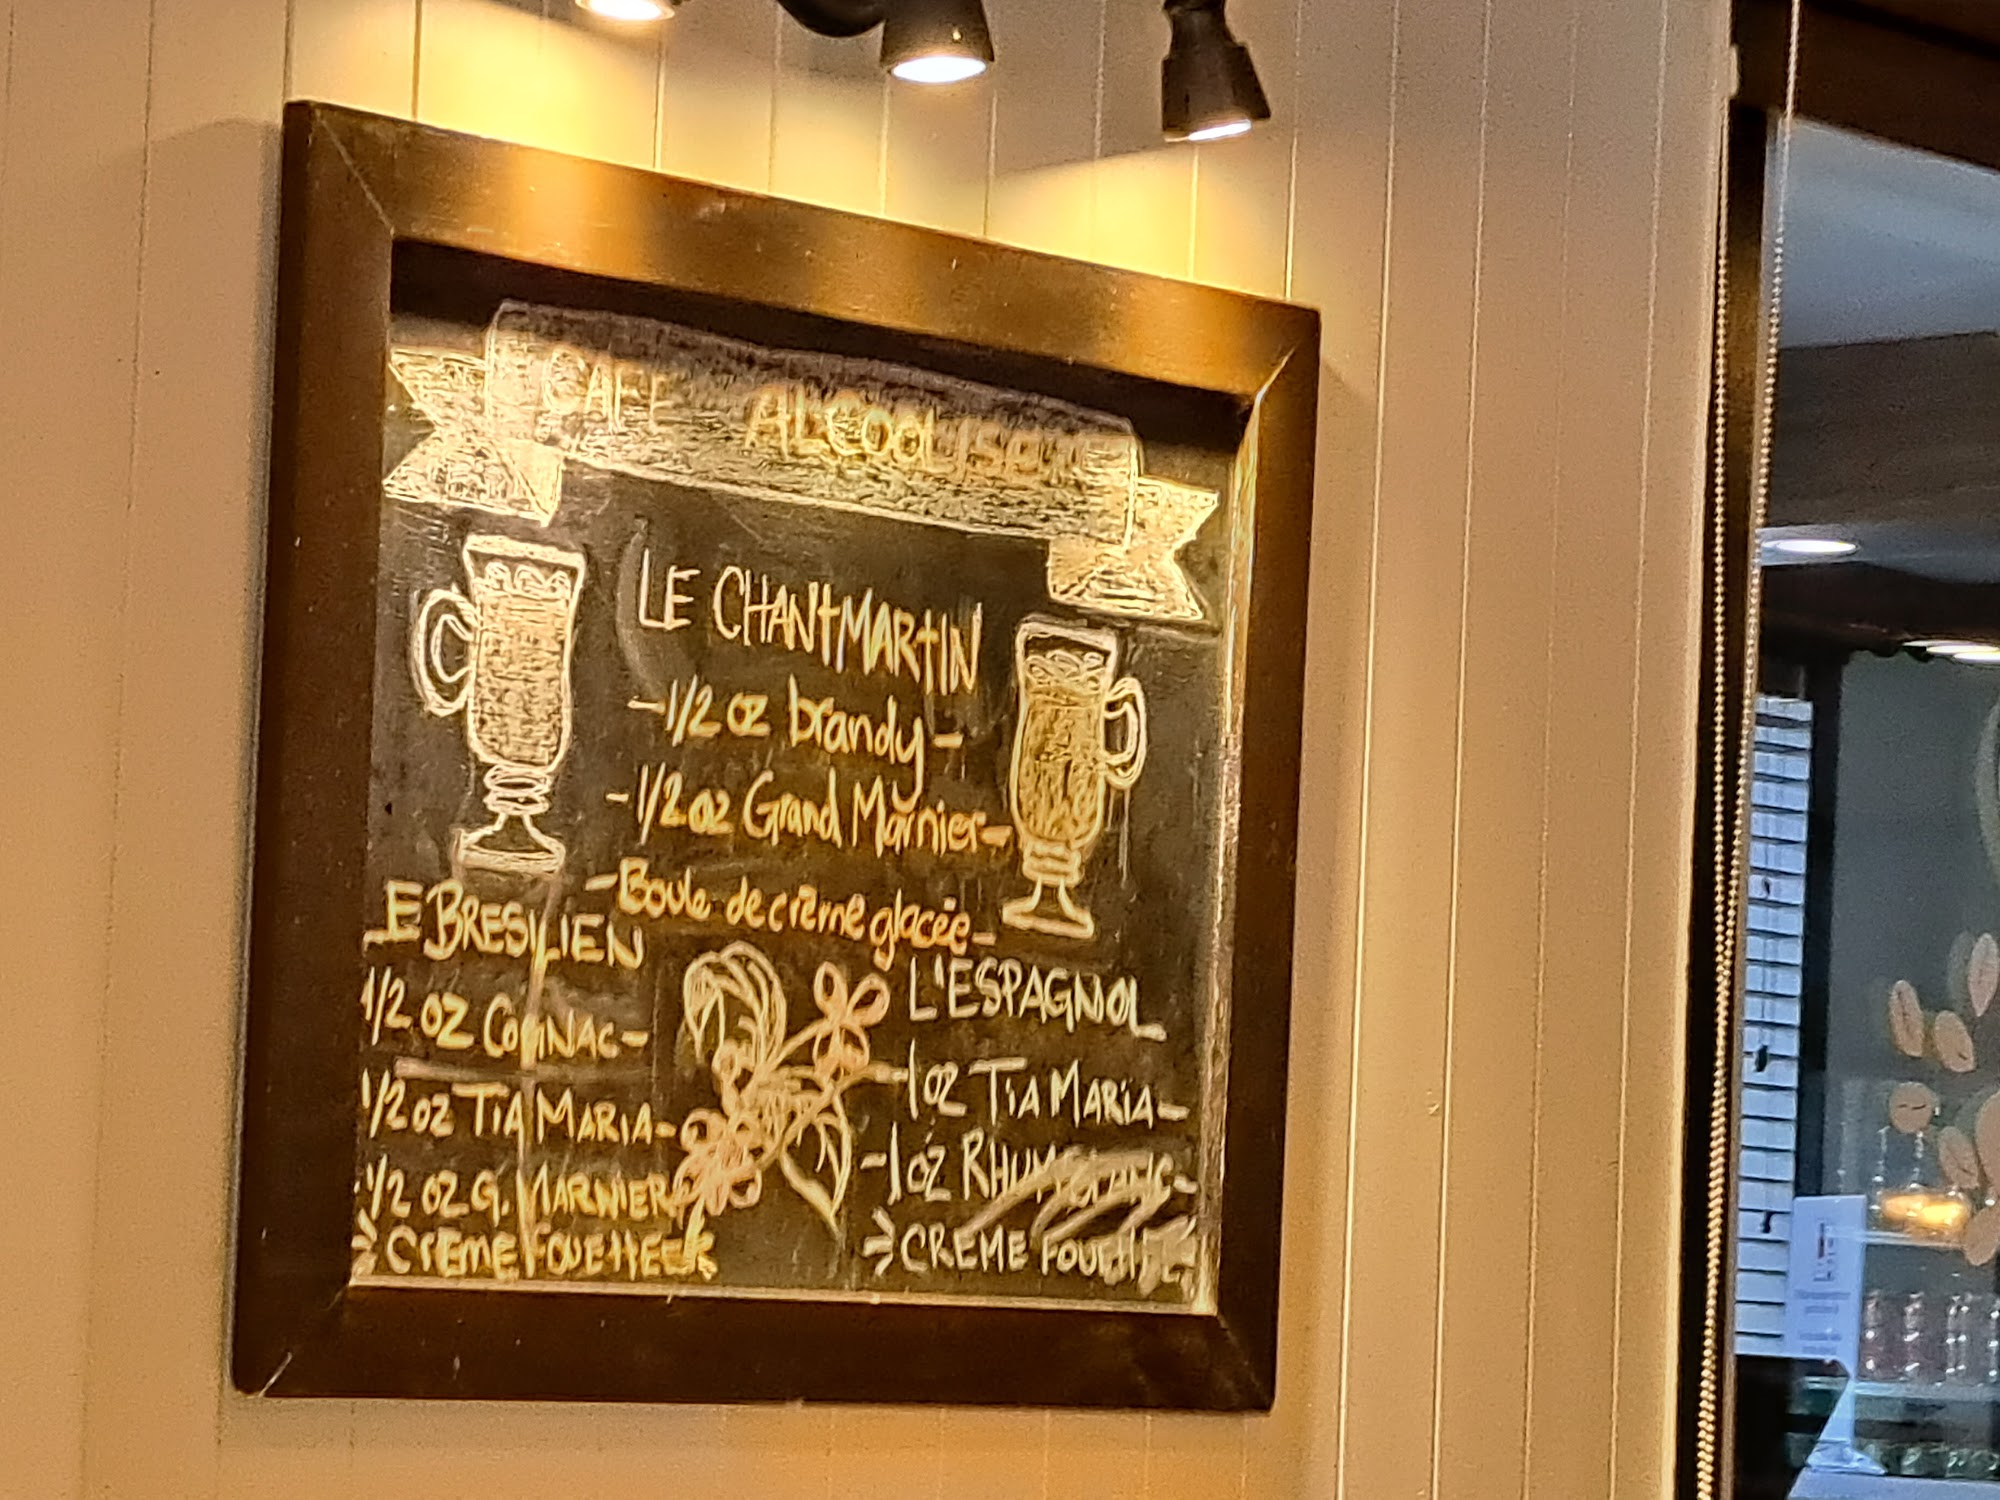 CAFÉ ALCOOLISÉ
LE CHANTMARTIN
-1/2 oz brandy-
-1/2 oz Grand Marnier-
-Boule de crème glacée-
LE BRESILIEN
1/2 OZ COGNAC-
1/2 OZ TIA MARIA-
1/2 OZ G. MARNIER
CREME FOUETTEE
L'ESPAGNOL
-1 OZ TIA MARIA-
-1 OZ RHUM BLANC-
CREME FOUETTEE